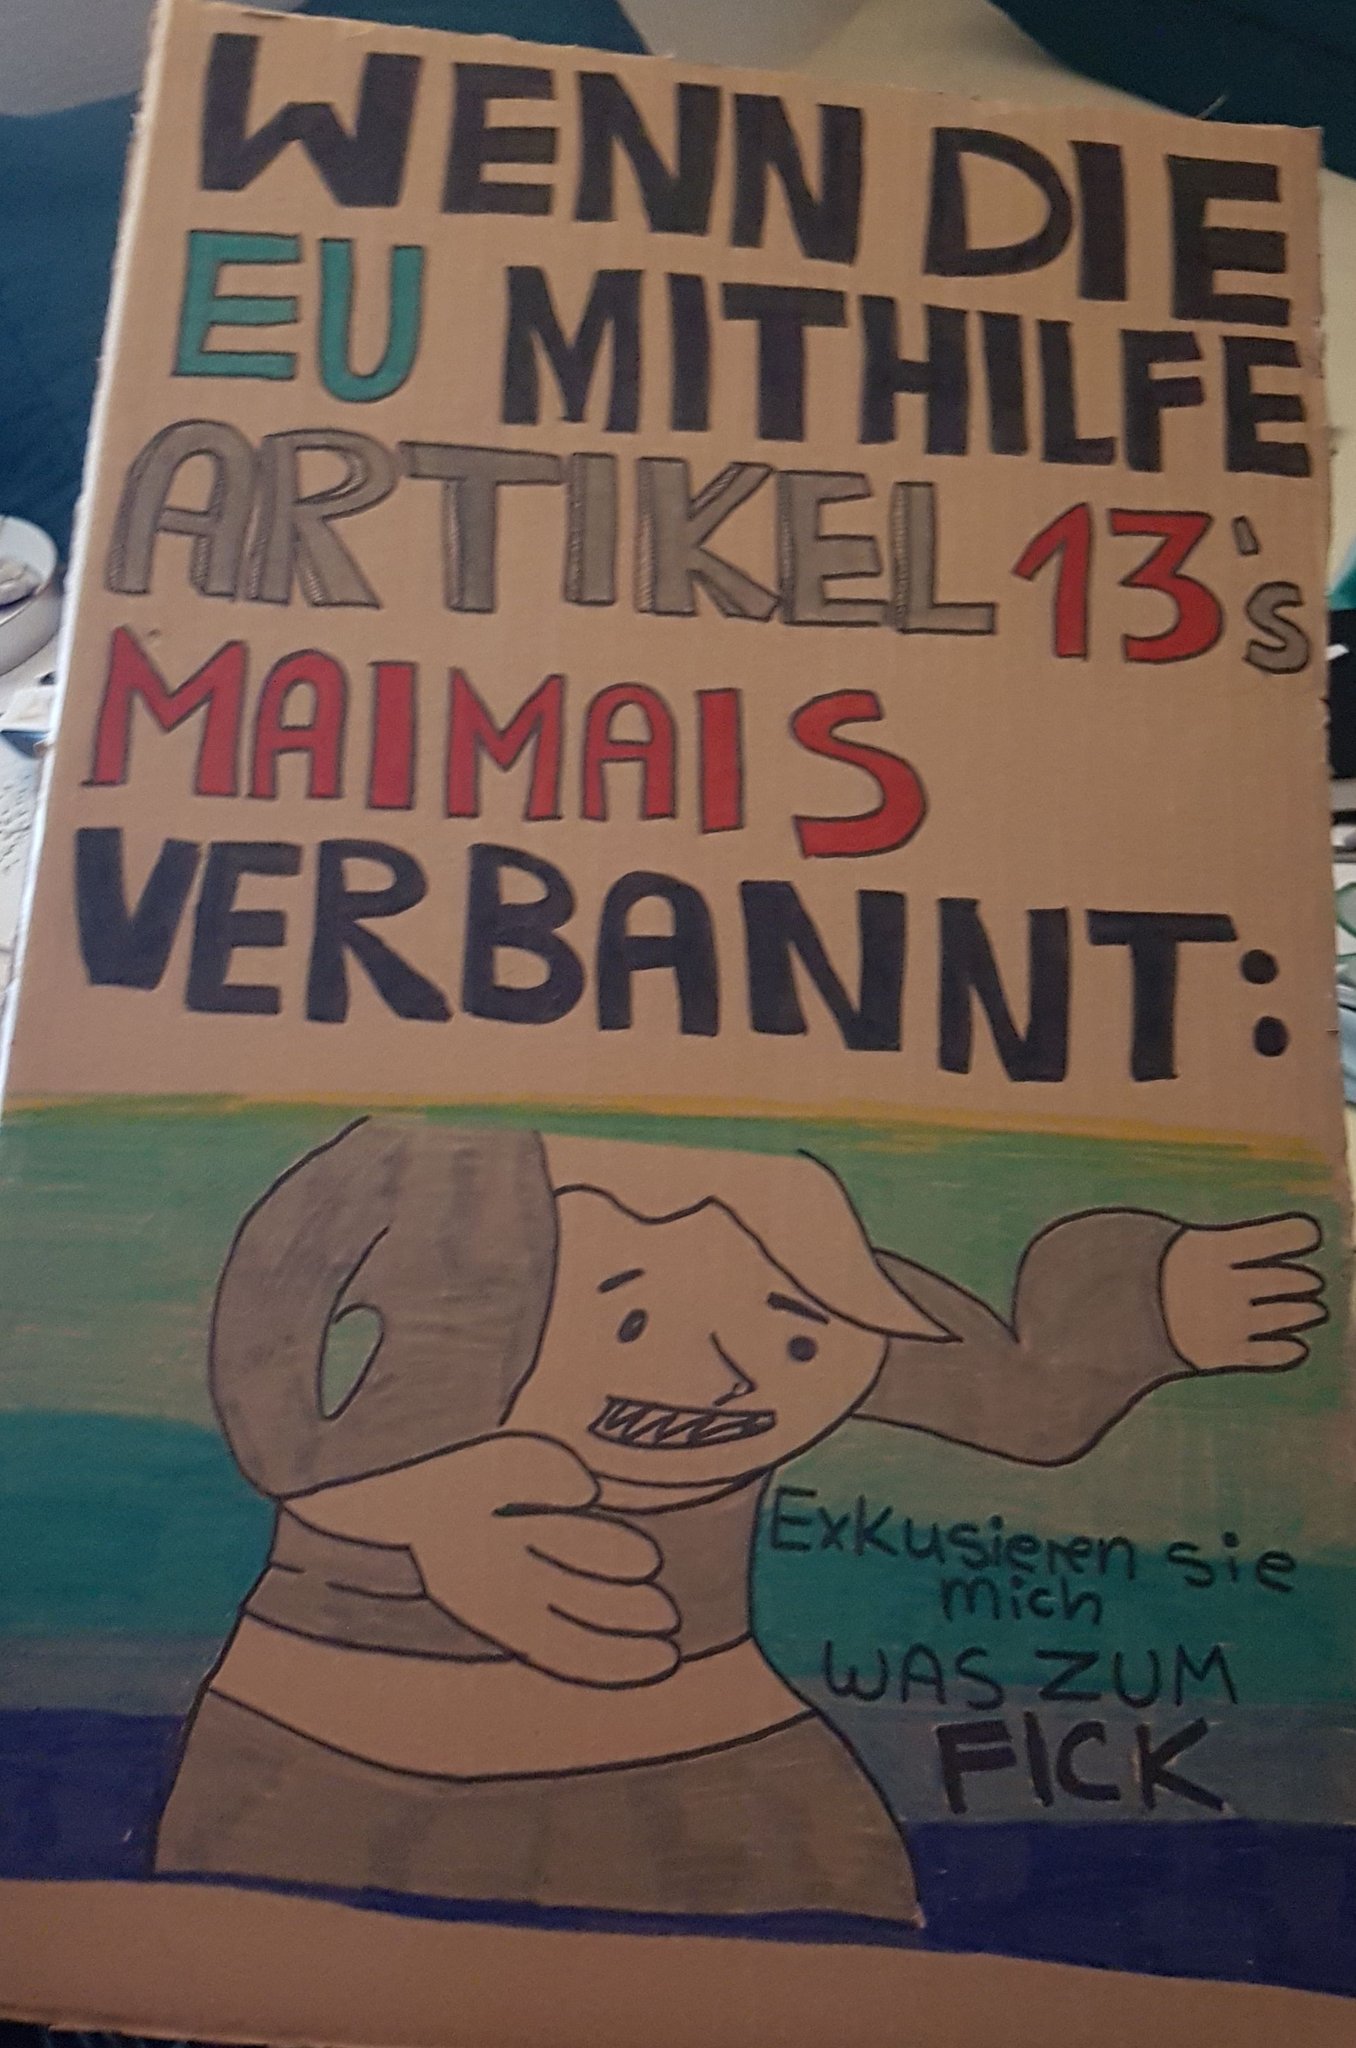 WENN DIE
EU MITHILFE
ARTIKEL 13's
MAIMAIS
VERBANNT:
Exkusieren sie
mich
WAS ZUM
FICK